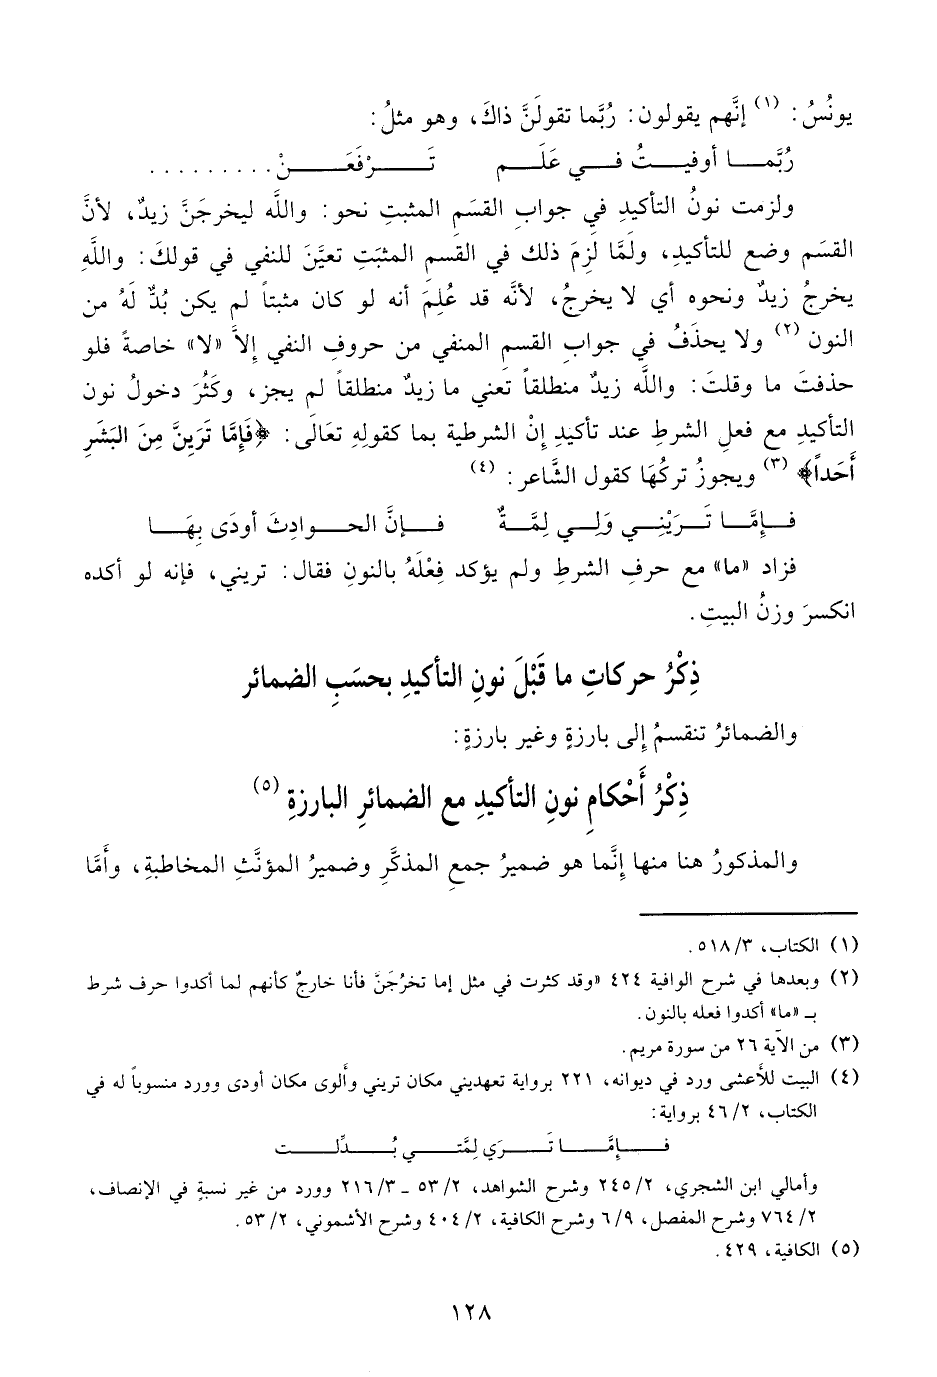 يونُسُ: (١) إنَّهم يقولون: رُبَّما تقولَنَّ ذاكَ، وهو مثلُ:
رُبَّمـــا أوفيـــتُ فـــي عَلَـــم تَـــرْفَعَـــنْ.........
ولزمت نونُ التأكيدِ في جوابِ القسَمِ المثبتِ نحو: واللَّه ليخرجَنَّ زيدٌ، لأنَّ
القسَم وضع للتأكيدِ، ولمَّا لَزِمَ ذلك في القسمِ المثبَتِ تعيَّنَ للنفي في قولكَ: واللَّهِ
يخرجُ زيدٌ ونحوه أي لا يخرجُ، لأنَّه قد عُلِمَ أنه لو كان مثبتاً لم يكن بُدٌّ لَهُ من
النون (٢) ولا يحذَفُ في جوابِ القسمِ المنفي من حروفِ النفي إلاَّ «لا» خاصةً فلو
حذفتَ ما وقلتَ: واللَّه زيدٌ منطلقاً تَعني ما زيدٌ منطلقاً لم يجز، وكَثُرَ دخولُ نون
التأكيدِ مع فعلِ الشرطِ عند تأكيدِ إنْ الشرطية بما كقولهِ تعَالَى: ﴿فَإِمَّا تَرَيِنَّ مِنَ البَشَرِ
أَحَداً﴾ (٣) ويجوزُ تركُهَا كقول الشَّاعر: (٤)
فـــإمَّـــا تَـــرَيْنِـــي وَلِـــي لِمَّـــةٌ فـــإنَّ الحـــوادِثَ أودَى بِهَـــا
فزاد «ما» مع حرفِ الشرطِ ولم يؤكد فِعْلَهُ بالنونِ فقال: تريني، فإنه لو أكده
انكسرَ وزنُ البيتِ.
ذِكْرُ حركاتِ ما قَبْلَ نونِ التأكيدِ بحسَبِ الضمائر
والضمائرُ تنقسمُ إلى بارزةٍ وغير بارزةٍ:
ذِكْرُ أَحْكامِ نونِ التأكيدِ مع الضمائرِ البارزةِ (٥)
والمذكورُ هنا منها إنَّما هو ضميرُ جمعِ المذكَّرِ وضميرُ المؤنَّثِ المخاطبةِ، وأَمَّا
(١) الكتاب، ٣/ ٥١٨.
(٢) وبعدها في شرح الوافية ٤٢٤ «وقد كثرت في مثل إما تخرُجَنَّ فأنا خارجٌ كأنهم لما أكدوا حرف شرط
بـ «ما» أكدوا فعله بالنون.
(٣) من الآية ٢٦ من سورة مريم.
(٤) البيت للأعشى ورد في ديوانه، ٢٢١ برواية تعهديني مكان تريني وألوى مكان أودى وورد منسوباً له في
الكتاب، ٢/ ٤٦ برواية:
فـــإمَّـــا تَـــرَي لِمَّتـــي بُـــدِّلـــت
وأمالي ابن الشجري، ٢/ ٢٤٥ وشرح الشواهد، ٢/ ٥٣ ـ ٣/ ٢١٦ وورد من غير نسبةٍ في الإنصاف،
٢/ ٧٦٤ وشرح المفصل، ٩/ ٦ وشرح الكافية، ٢/ ٤٠٤ وشرح الأشموني، ٢/ ٥٣.
(٥) الكافية، ٤٢٩.
١٢٨